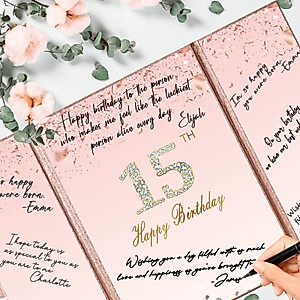 Happy birthday to the person
who makes me feel like the luckiest
person alive every day
Elijah
15
TH
Happy Birthday
Wishing you a day filled with as much
love and happiness as you've brought to
happy
were born.
-Emma
I hope today is
as special to you
as you are to
me
Charlotte
I'm so happy
you were born.
-Emma
On your birthday